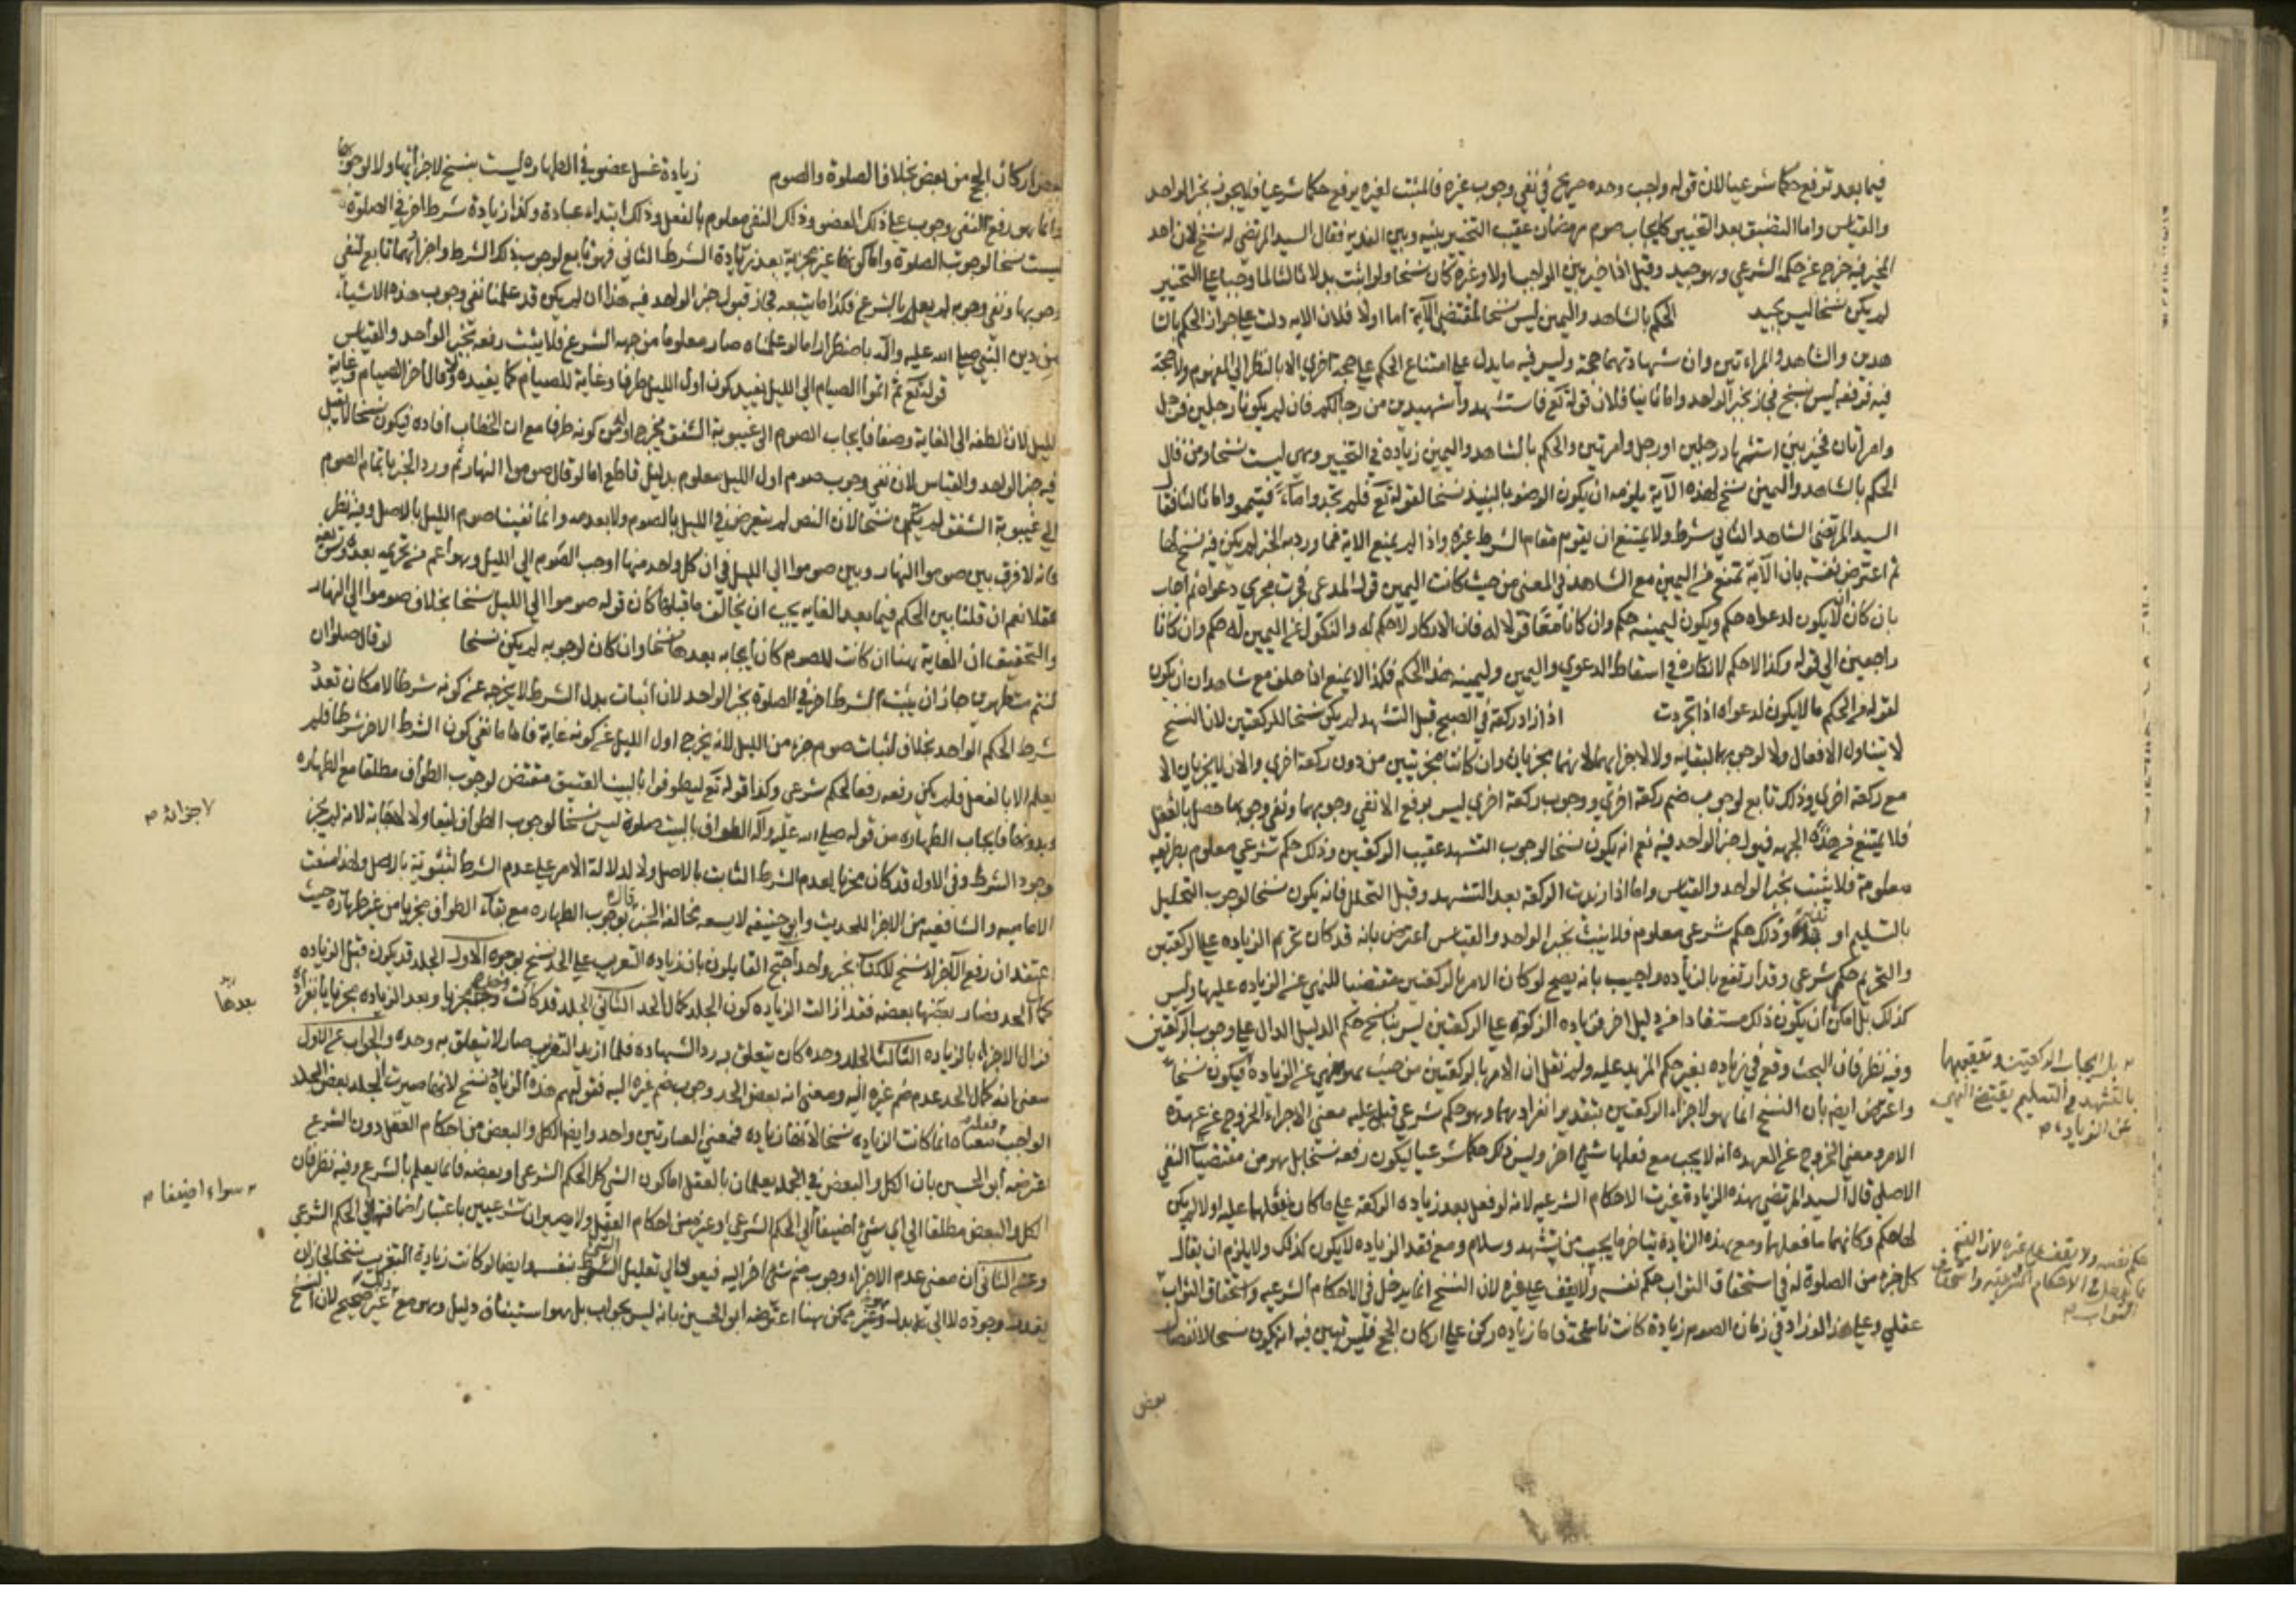 فيما بعد ترفع حكما شرعيا لان قوله واجب وحده صريح في نفي وجوب غيره فالمثبت لغيره يرفع حكما شرعيا فلا يجوز بخبر الواحد
والقياس واما التضيق بعد التخيير كايجاب صوم رمضان عقيب التخيير بينه وبين الفدية فقال السيد المرتضى له نسخ لان احد
المخير فيه خرج عن حكمه الشرعي وهو جيد وقيل اذا خير بين الواجب اولا وغيره كان نسخا ولو اثبت بدلا ثالثا لما وجبا على التخيير
لم يكن نسخا ليس بجيد الحكم بالشاهد واليمين ليس نسخا لمقتضى الآية اما اولا فلان الاية دلت على جواز الحكم بالشا
هدين والشاهد والمراءتين وان شهادتهما حجة وليس فيه ما يدل على امتناع الحكم على حجة اخرى الا بالنظر الى المفهوم ولا حجة
فيه فرفعه ليس بنسخ فجاز بخبر الواحد واما ثانيا فلان قوله تع فاستشهدوا شهيدين من رجالكم فان لم يكونا رجلين فرجل
وامراتان تخيير بين استشهاد رجلين او رجل وامرتين والحكم بالشاهد واليمين زيادة في التخيير وهي ليست نسخا ومن قال
الحكم بالشاهد واليمين نسخ لهذه الآية يلزمه ان يكون الوضو بالنبيذ نسخا لقوله تع فلم تجدوا ماء فتيمموا واما ثالثا فقا
السيد المرتضى الشاهد الثاني شرط ولا يمتنع ان يقوم مقام الشرط غيره واذا لم يمنع الاية فما ورد به الخبر لم يكن فيه نسخ لها
ثم اعترض نفسه بان الآية تمنع من اليمين مع الشاهد في المعنى من حيث كانت اليمين قول المدعي فجرت مجرى دعواه ثم اجاب
بان كان لا يكون لدعواه حكم ويكون ليمينه حكم وان كانا معا قولا له فان الانكار لا حكم له والنكول عن اليمين له حكم وان كانا
راجعين الى قوله وكذا لا حكم لانكاره في اسقاط الدعوى واليمين وليمينه هذا الحكم فكذا لا يمنع اذا حلف مع شاهد ان يكون
لقوله من الحكم ما لا يكون لدعواه اذا تجردت اذا زاد ركعة في الصبح قبل التشهد لم يكن نسخا للركعتين لان النسخ
لا يتناول الافعال ولا لوجوبها لبقائه ولا لاجزائهما لانهما مجزيان وان كانتا مجزيتين من دون ركعة اخرى والان لا يجزيان الا
مع ركعة اخرى وذلك تابع لوجوب ضم ركعة اخرى ووجوب ركعة اخرى ليس يرفع الا نفي وجوبهما ونفي وجوبها حصل بالعقل
فلا يمتنع من هذه الجهه قبول خبر الواحد فيه نعم انه يكون نسخا لوجوب التشهد عقيب الركعتين وذلك حكم شرعي معلوم بطريقه
معلومة فلا يثبت بخبر الواحد والقياس واما اذا زيدت الركعة بعد التشهد وقبل التحلل فانه يكون نسخا لوجوب التحليل
بالتسليم او وذلك حكم شرعي معلوم فلا يثبت بخبر الواحد والقياس اعترض بانه قد كان تحريم الزياده على الركعتين
والتحريم حكم شرعي وقد ارتفع بالزيادة واجيب بانه يصح لو كان الامر بالركعتين مقتضيا للنهي عن الزيادة عليها وليس
كذلك بل امكن ان يكون ذلك مستفادا من دليل اخر فزياده الركعة على الركعتين ليس بناسخ حكم الدليل الدال على وجوب الركعتين
وفيه نظر فان البحث وقع في زياده بغير حكم المزيد عليه ولم نقل ان الامر بالركعتين من حيث هو نهي عن الزيادة فيكون نسخا
واعترض ايضا بان النسخ انما هو لاجزاء الركعتين بتقدير انفرادهما وهو حكم شرعي قيل عليه معنى الاجزاء الخروج عن عهدة
الامر ومعنى الخروج عن العهدة انه لا يجب مع فعلها شي اخر وليس ذلك حكما شرعيا ليكون رفعه نسخا بل هو من مقتضيات النفي
الاصلي قال السيد المرتضى بهذه الزيادة غيرت الاحكام الشرعيه لانه لو فعل بعد زياده الركعة على ما كان يفعلهما عليه اولا لم يكن
لهما حكم وكانهما ما فعلهما ومع هذه الزيادة يتاخر ما يجب من تشهد وسلام ومع فقد الزياده لا يكون كذلك ولا يلزم ان يقال
كل جزء من الصلوة له في استحقاق الثواب حكم نفسه ولا يقف على غيره لان النسخ انما يدخل في الاحكام الشرعيه واستحقاق الثواب
عقلي وعلى هذا لو زاد في زمان الصوم زيادة كانت ناسخة فاما زياده ركن على اركان الحج فليس يبين فيه انه يكون نسخا لانفصال
بعض
بل ايجاب الركعتين وتعقيبهما
بالتشهد والتسليم يقتضي النهي
عن الزيادة م
حكم نفسه ولا يقف على غيره لان النسخ
انما يدخل في الاحكام الشرعيه واستحقاق
الثواب م
بعض اركان الحج من بعض بخلاف الصلوة والصوم زيادة غسل عضو في الطهارة ليست بنسخ لاجزائها ولا لوجوبها
وانما هو رفع لنفي وجوب غسل ذلك العضو وذلك النفي معلوم بالعقل وذلك ابتداء عبادة وكذا زيادة شرط اخر في الصلوة
ليست نسخا لوجوب الصلوة واما كونها غير مجزية بعد زيادة الشرط الثاني فهو تابع لوجوب ذلك الشرط واجزائهما تابع لنفي
وجوبها ونفي وجوبه لم يعلم بالشرع فكذا ما يتبعه فجاز قبول خبر الواحد فيه هذا ان لم يكن قد علمنا نفي وجوب هذه الاشياء
من دين النبي صلى الله عليه وآله باضطرار اما لو علمناه صار معلوما من جهه الشرع فلا يثبت رفعه بخبر الواحد والقياس
قوله تع ثم اتموا الصيام الى الليل يفيد كون اول الليل طرفا وغاية للصيام كما يفيده لو قال اخر الصيام وغايته
الليل لان لفظه الى الغاية وضعا فايجاب الصوم الى غيبوبة الشفق يخرج اوله عن كونه طرفا مع ان الخطاب افاده فيكون نسخا لا يقبل
فيه خبر الواحد والقياس لان نفي وجوب صوم اول الليل معلوم بدليل قاطع اما لو قال صوموا النهار ثم ورد الخبر باتمام الصوم
الى غيبوبة الشفق لم يكن نسخا لان النص لم يتعرض في الليل بالصوم ولا بعدمه وانما نفينا صوم الليل بالاصل وفيه نظر
فانه لا فرق بين صوموا النهار وبين صوموا الى الليل في ان كل واحد منهما اوجب الصوم الى الليل وهو اعم من تحريمه بعده
عقلا نعم ان قلنا بين الحكم فيما بعد الغايه يجب ان يخالف ما قبلها كان قوله صوموا الى الليل نسخا بخلاف صوموا الى النهار
والتحقيق ان الغاية هنا ان كانت للصوم كان ايجابه بعدها نسخا وان كان لوجوبه لم يكن نسخا لو قال صلوا ان
كنتم متطهرين جاز ان يثبت الشرط اخر في الصلوة بخبر الواحد لان اثبات بدل الشرط لا يخرجه عن كونه شرطا لامكان تعدد
شرط الحكم الواحد بخلاف اثبات صوم جزء من الليل لانه يخرج اول الليل عن كونه غاية فاما ما نفي كون الشرط الاخر شرطا فلم
يعلم الا بالعقل فلم يكن رفعه رفعا لحكم شرعي وكذا قوله تع ليطوفوا بالبيت العتيق مقتض لوجوب الطواف مطلقا مع الطهاره
وبدونها فايجاب الطهارة من قوله صلى الله عليه وآله الطواف بالبيت صلوة ليس نسخا لوجوب الطواف لبقاء ولا لانه لم يجز
وجود الشرط وفي الاول قد كان مجزيا لعدم الشرط الثابت بالاصل ولا لدلالة الامر على عدم الشرط لثبوته بالاصل ولهذا منعت
الاماميه والشافعيه من الاجزاء للحديث وابي حنيفه لا يسعه مخالفة الخبر لوجوب الطهارة مع بقاء الطواف مجزيا من غير طهارة حيث
اعتقد ان رفع الاجزاء نسخ للكتاب بخبر واحد احتج القايلون بان زياده التغريب على الحد نسخ بوجوه الاول الجلد قد يكون قبل الزياده
كمال الحد فصار بعضها بعضه فقد ازالت الزياده كون الجلد كمال الحد الثاني الجلد قد كانت وحده مجزيا وبعد الزياده مجزيا بانفراده
فزال الاجزاء بالزياده الثالث الجلد وحده كان يتعلق به رد الشهاده فلما زيد التغريب صار لا يتعلق به وحده والجواب عن الاول
معنى انه كمال الحد عدم ضم غيره اليه ومعنى انه بعض الحد وجوب ضم غيره اليه فقولهم هذه الزيادة نسخ لانها صيرت الجلد بعض الحد
الواجب معناه انما كانت الزياده نسخا لانها زياده فمعنى العبارتين واحد وايضا الكل والبعض من احكام العقل دون الشرع
اعترضه ابو الحسين بان الكل والبعض في الجمله يعلمان بالعقل اما كون الشي كل الحكم الشرعي او بعضه فانما يعلم بالشرع وفيه نظر فان
الكل والبعض مطلقا الى اي شيء اضيفا الى الحكم الشرعي او غيره من احكام العقل ولا يصيران شرعيين باعتبار اضافتهما الى الحكم الشرعي
وعن الثاني ان معنى عدم الاجزاء وجوب ضم شي اخر اليه فيعود الى تعليل الشي بنفسه وايضا لو كانت زيادة التغريب نسخا لجاز ان
وجوده لا الى بدل وغير ممكن هنا اعترضه ابو الحسين بانه ليس بجواب بل هو استيناف دليل وهو مع ذلك غير صحيح لان النسخ
لاجزائه م
بعدها
سواء اضيفا م